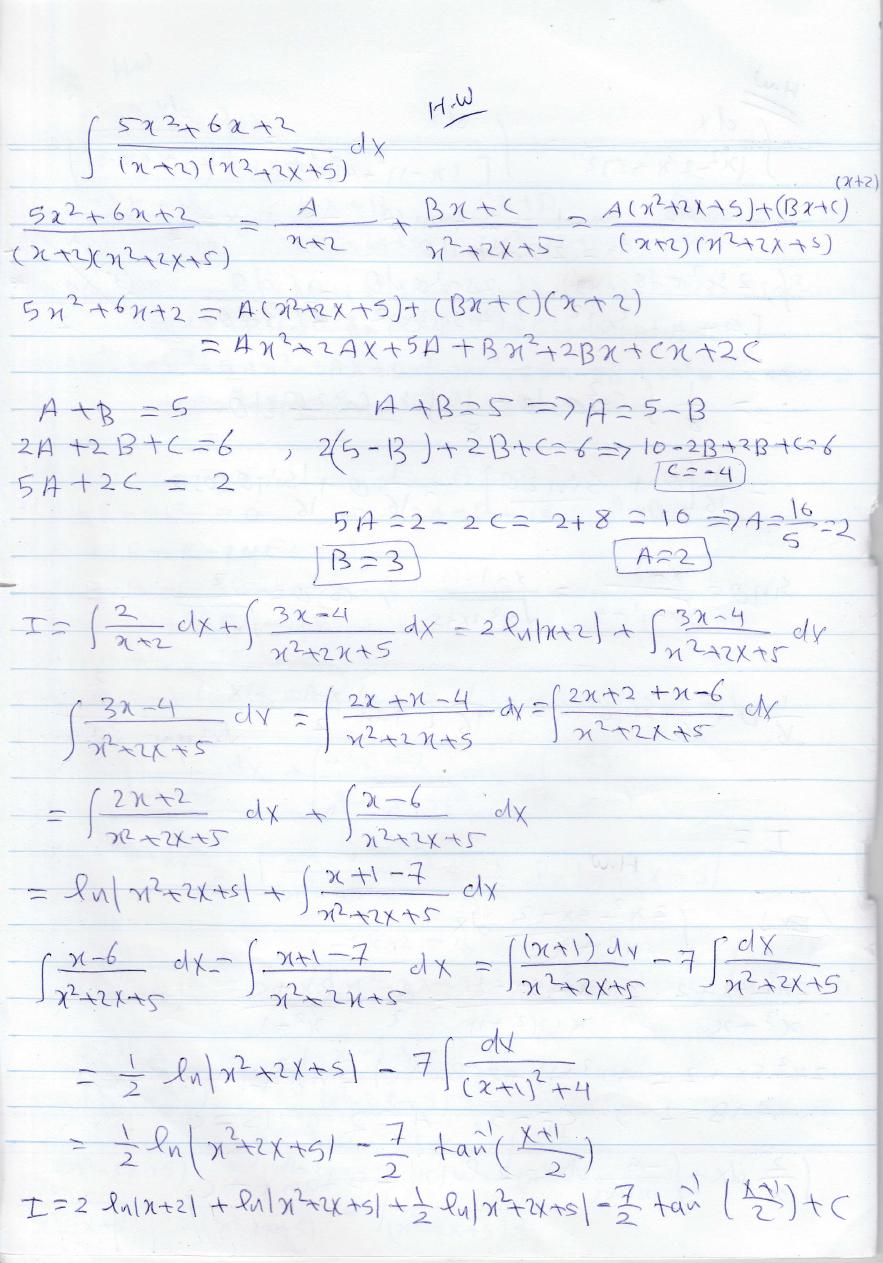 H.W
∫ (5x²+6x+2)/((x+2)(x²+2x+5)) dx
(5x²+6x+2)/((x+2)(x²+2x+5)) = A/(x+2) + (Bx+C)/(x²+2x+5) = (A(x²+2x+5)+(Bx+C)(x+2))/((x+2)(x²+2x+5))
5x²+6x+2 = A(x²+2x+5)+(Bx+C)(x+2)
= Ax²+2Ax+5A+Bx²+2Bx+Cx+2C
A+B = 5    A+B=5 => A=5-B
2A+2B+C=6 , 2(5-B)+2B+C=6 => 10-2B+2B+C=6
5A+2C = 2    C=-4
5A=2-2C= 2+8 = 10 => A=10/5=2
B=3    A=2
I= ∫ 2/(x+2) dx + ∫ (3x-4)/(x²+2x+5) dx = 2 ln|x+2| + ∫ (3x-4)/(x²+2x+5) dx
∫ (3x-4)/(x²+2x+5) dx = ∫ (2x+x-4)/(x²+2x+5) dx = ∫ (2x+2+x-6)/(x²+2x+5) dx
= ∫ (2x+2)/(x²+2x+5) dx + ∫ (x-6)/(x²+2x+5) dx
= ln|x²+2x+5| + ∫ (x+1-7)/(x²+2x+5) dx
∫ (x-6)/(x²+2x+5) dx = ∫ (x+1-7)/(x²+2x+5) dx = ∫ (x+1)dx/(x²+2x+5) - 7 ∫ dx/(x²+2x+5)
= 1/2 ln|x²+2x+5| - 7 ∫ dx/((x+1)²+4)
= 1/2 ln|x²+2x+5| - 7/2 tan⁻¹((x+1)/2)
I = 2 ln|x+2| + ln|x²+2x+5| + 1/2 ln|x²+2x+5| - 7/2 tan⁻¹((x+1)/2) + C